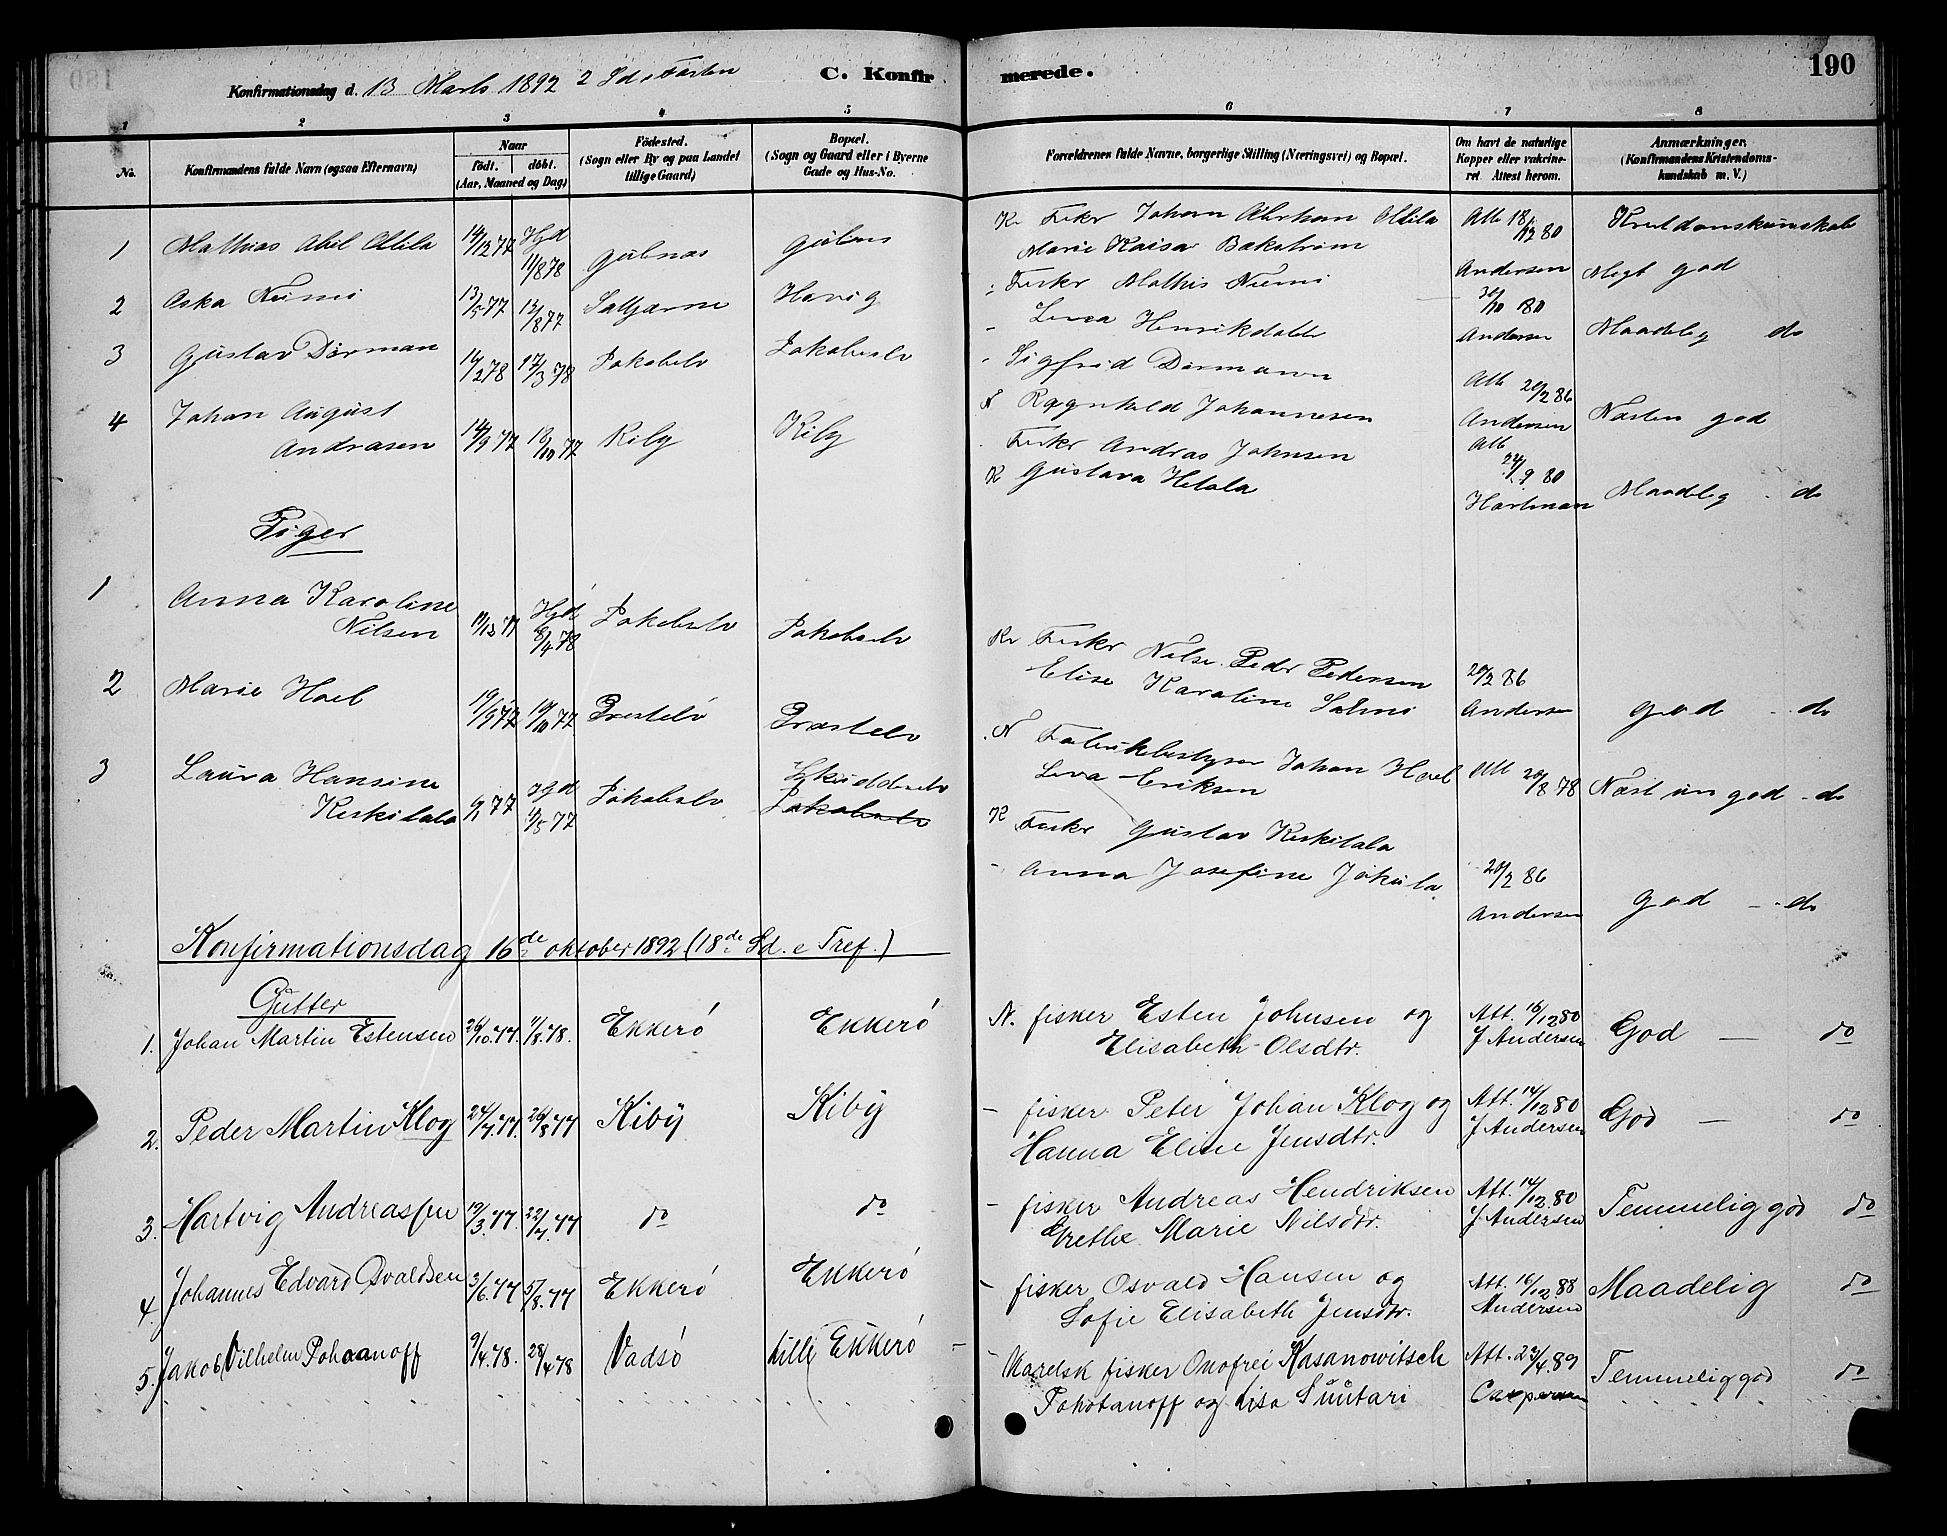 190
Konfirmationsdag d. 13 Marts 1892 2 Sd i Fasten C. Konfirmerede.
1 2 3 4 5 6 7 8
No. Konfirmandens fulde Navn (ogsaa Efternavn) Naar födt. döbt. (Aar, Maaned og Dag) Födested. (Sogn eller By og paa Landet tillige Gaard) Bopæl. (Sogn og Gaard eller i Byerne Gade og Hus-No. Forældrenes fulde Navne, borgerlige Stilling (Næringsvei) og Bopæl. Om havt de naturlige Kopper eller vakcineret. Attest herom. Anmærkninger. (Konfirmandens Kristendomskundskab m. V.)
1 Mathias Abil Ollila 14/12 77 Hjd 11/8 78 Golnes Golnes
Kv Fisker Johan Abrham Ollila Att 18/12 80
Marie Kaisa Bækstrøm Andersen Megt god
2 Aska Niemi 13/5 77 12/8 77 Havig
- Fisker Mathis Niemi 30/10 80
Leva Henriksdatter Andersen Maadelig do
3 Gustav Dørman 14/2 78 17/3 78 Jakobselv Jakobselv
- Sigfrid Dørmann Att 20/2 86
N Ragnhild Johannesen Andersen Næsten god
4 Johan August
Andrasen 14/9 77 18/10 77 Kiby Kiby
Fisker Andras Johnsen Att 24/9 80
K Gustava Hetala Hartman Maadelig - do
Piger
1 Anna Karoline
Nilsen Hjd 8/4 78 Jakobselv Jakobselv
Kv Fisker Nils Peder Pedersen 20/2 86
Elise Karoline Salmi Andersen god - do
2 Marie Hoel 19/9 77 19/10 77 Præstelv Præstelv
N Fabrikbestyrer Johan Hoel Att 20/8 78
Leva Eriksen Næst un god - do
3 Laura Hansine
Keskitalo 9/1 77 Hjd 11/5 77 Jakobselv Skiddenelv
Jakobselv
K Fisker Gustav Keskitalo 20/2 86
- Anna Josefine Jokula Andersen god - do
Konfirmationsdag 16de oktober 1892 (18de Sd. e Tref.)
Gutter
1. Johan Martin Estensen 26/10.77. 1/8.78. Ekkerö Ekkerö
N. fisker Esten Johnsen og Att. 16/12 80
Elisabeth Olsdtr. J Andersen God — do
2. Peder Martin Klog 24/7.77. 26/8 77 Kiby Kiby
- fisker Peter Johan Klog og Att. 14/12 80
Hanna Elise Jensdtr. J Andersen God — do
3. Hartvig Andreassen 19/3.77. 22/4.77 do do
- fisker Andreas Hendriksen Att. 14/12.80
Grethe Marie Nilsdtr. J Andersen Temmelig god do
4. Johannes Edvard Osvaldsen 3/6.77 5/8.77 Ekkerö Ekkerö
- fisker Osvald Hansen og Att. 16/12.88
Sofie Elisabeth Jensdtr. Andersen Maadelig do
5. Jakob Vilhelm Pohaanoff 9/4.78. 28/4 78 Vadsö Lille Ekkerö
- Karelsk fisker Onofrei Kasanowitsch Att. 23/4.89
Pohotanoff og Lisa Suutari Caspersen Temmelig god do